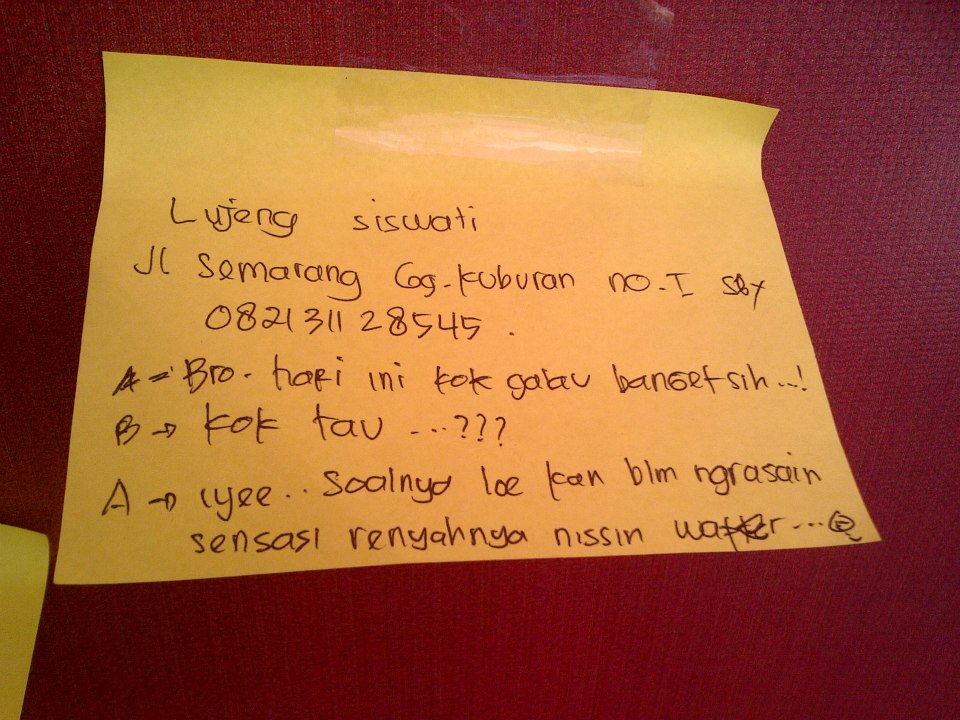 Lujeng siswati
Jl Semarang Gg. kuburan no. I sby
0821 311 28545 .
A = Bro. hari ini kok galau banget sih...!
B → kok tau ...???
A → iyee.. Soalnya loe kan blm ngrasain
sensasi renyahnya nissin wafer ...